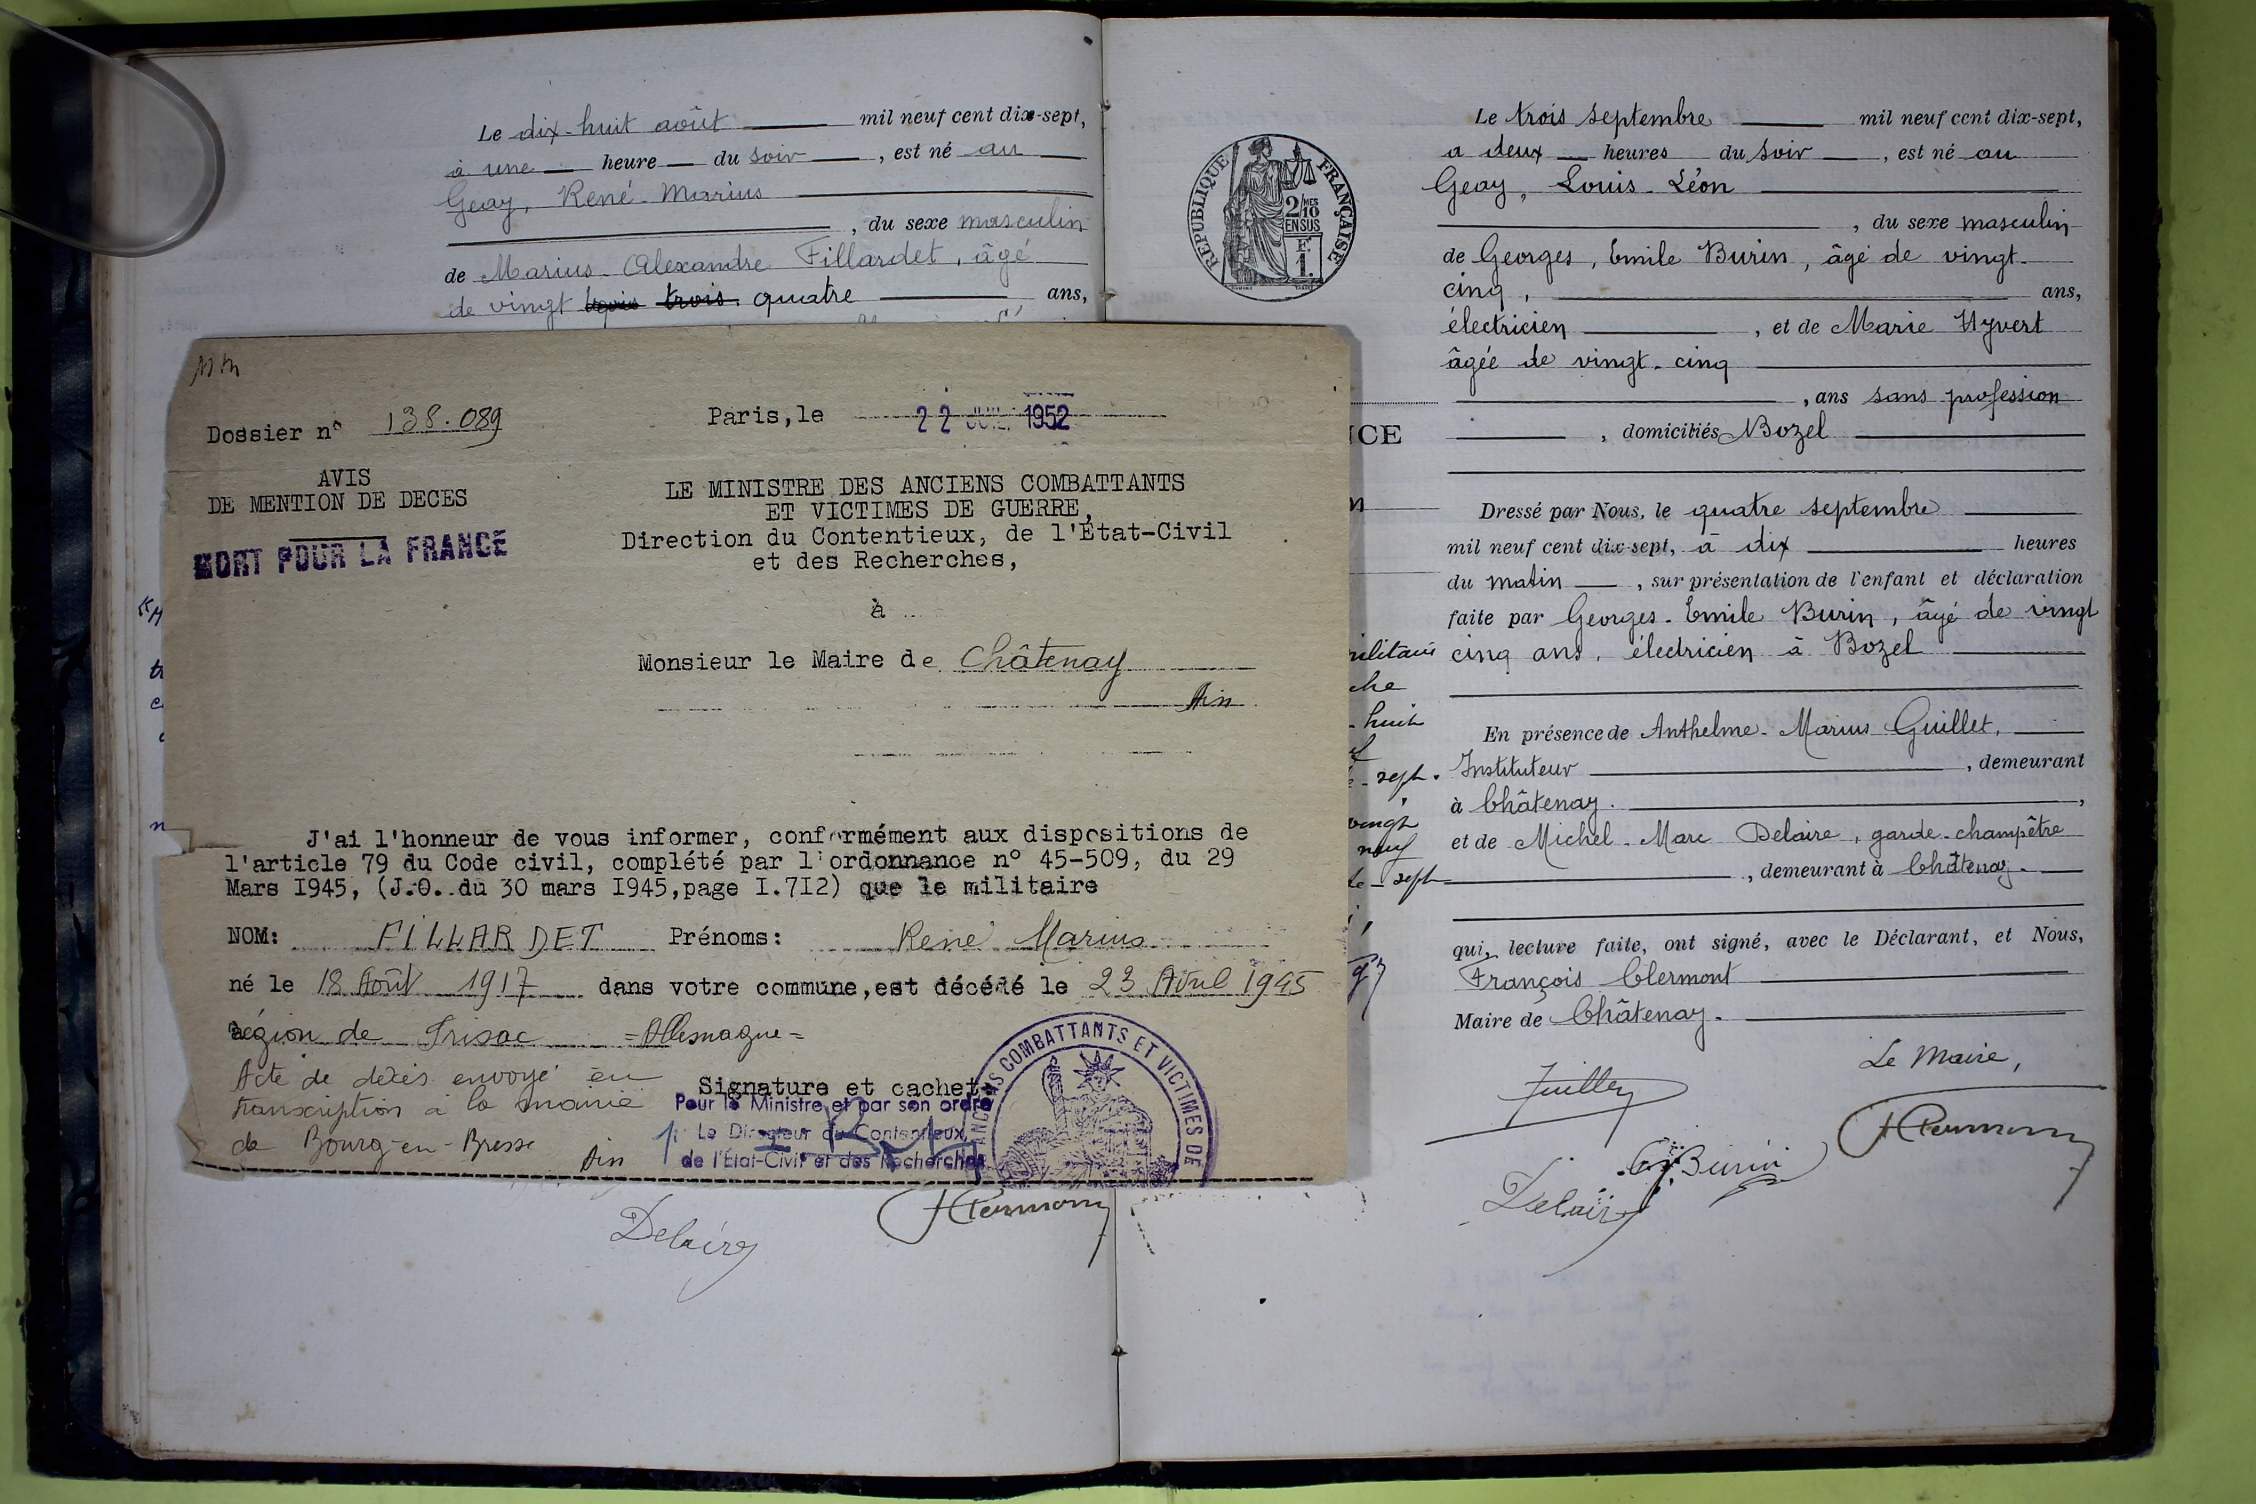 Le dix-huit août mil neuf cent dix-sept,
à une heure du soir, est né au
Geay, René-Marius
, du sexe masculin
de Marius-Alexandre Fillardet, âgé
de vingt trois quatre ans,
Dossier n° 138.089
Paris, le 22 JUIL 1952
AVIS
DE MENTION DE DECES
MORT POUR LA FRANCE
LE MINISTRE DES ANCIENS COMBATTANTS
ET VICTIMES DE GUERRE,
Direction du Contentieux, de l'État-Civil
et des Recherches,
à
Monsieur le Maire de Châtenay
Ain
J'ai l'honneur de vous informer, conformément aux dispositions de
l'article 79 du Code civil, complété par l'ordonnance n° 45-509, du 29
Mars I945, (J.O. du 30 mars I945, page I.7I2) que le militaire
NOM: FILLARDET Prénoms: René Marius
né le 18 Août 1917 dans votre commune, est décédé le 23 Avril 1945
région de Allemagne
Acte de décès envoyé en
transcription à la mairie
de Bourg-en-Bresse Ain
Signature et cachet
Pour le Ministre et par son ordre
Le Directeur du Contentieux,
de l'État-Civil et des Recherches
ANCIENS COMBATTANTS ET VICTIMES DE
Delaire
FClermont
RÉPUBLIQUE FRANÇAISE
2/10 MES
EN SUS
F.
1.
CE
n
militaire
che
huit
sept.
vingt
neuf
sept
Le trois septembre mil neuf cent dix-sept,
à deux heures du soir, est né au
Geay, Louis-Léon
, du sexe masculin
de Georges, Emile Burin, âgé de vingt-
cinq, ans,
électricien, et de Marie Hyvert
âgée de vingt-cinq
, ans sans profession
, domiciliés Bozel
Dressé par Nous, le quatre septembre
mil neuf cent dix-sept, à dix heures
du matin, sur présentation de l'enfant et déclaration
faite par Georges-Emile Burin, âgé de vingt
cinq ans, électricien à Bozel
En présence de Anthelme-Marius Guillet,
Instituteur, demeurant
à Châtenay.,
et de Michel-Marc Delaire, garde-champêtre
, demeurant à Châtenay.
qui, lecture faite, ont signé, avec le Déclarant, et Nous,
François Clermont
Maire de Châtenay.
Le Maire,
Guillet
FClermont
G. Burin
Delaire